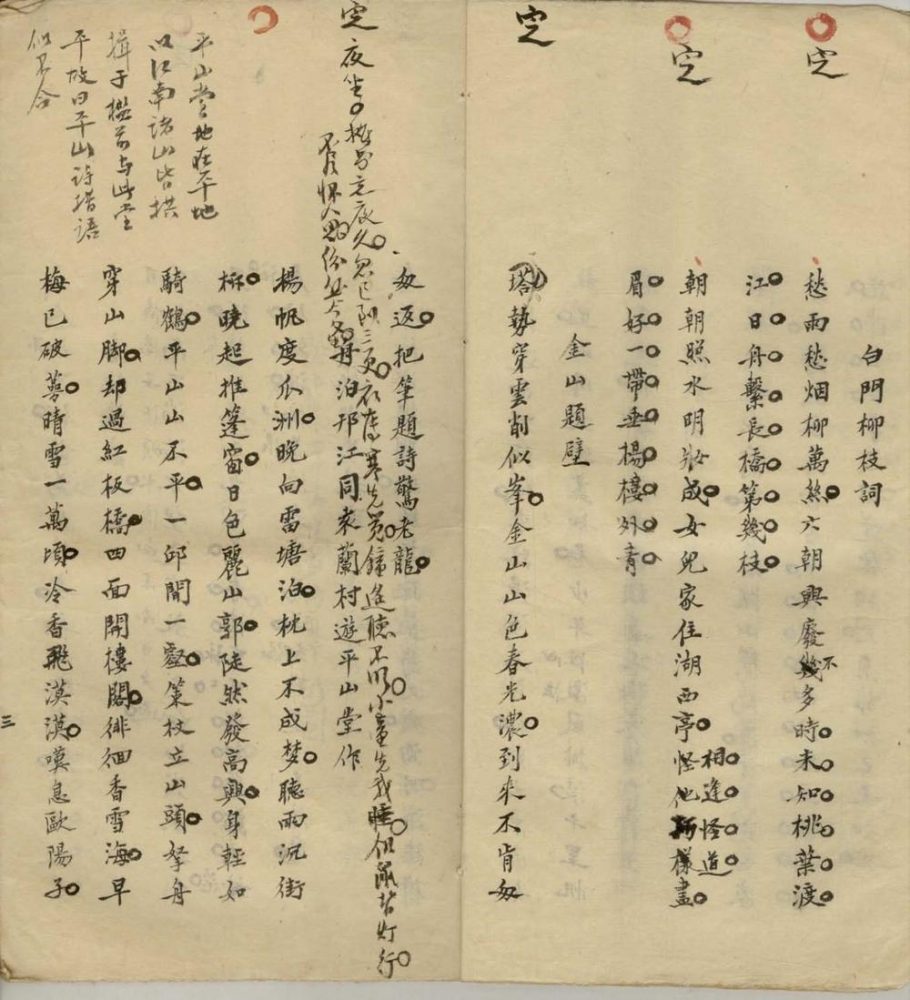 定
定
定
白門柳枝詞
愁雨愁烟柳萬絲六朝興廢幾不多時未知桃葉渡
江日舟繫長橋第幾枝
朝朝照水明妝成女兒家住湖西亭怪他樣畫
相逢怪道
眉好一帶垂楊樓外青
金山題壁
塔勢穿雲削似峯金山山色春光濃到來不肯匆
匆返把筆題詩驚老龍
定
夜坐
夜久忽已到三更衣薄寒先覺鐘遙聽不明小童先我睡但鼠背灯行
再泊邗江同袁蘭村遊平山堂作
楊帆度瓜洲晚向雷塘泊枕上不成梦聽雨沉街
柝曉起推篷窗日色麗山郭陡然發高興身輕如
騎鶴平山山不平一邱開一壑策杖立山頭拏舟
穿山脚却過紅板橋四面開樓閣徘徊香雪海早
梅已破萼晴雪一萬頃冷香飛漠漠嘆息歐陽子
平山堂地在平地
以江南諸山皆拱
揖于檻前与此堂
平故曰平山詩措語
似不合
三